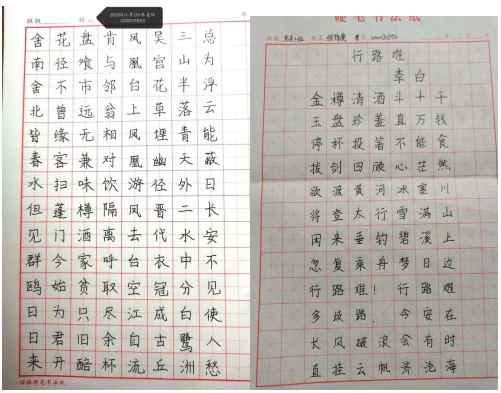 班级
年
舍南舍北皆春水但见群鸥日日来
花径不曾缘客扫蓬门今始为君开
盘喰市远无兼味樽酒家贫只旧醅
肯与邻翁相对饮隔离呼取尽余杯
凤凰台上凤凰游凤去台空江自流
吴宫花草埋幽径晋代衣冠成古丘
三山半落青天外二水中分白鹭洲
总为浮云能蔽日长安不见使人愁
田格硬笔书法纸
硬笔书法纸
班级 姓名
行路难
李白
金樽清酒斗十千
玉盘珍羞直万钱
停杯投箸不能食
拔剑四顾心茫然
欲渡黄河冰塞川
将登太行雪满山
闲来垂钓碧溪上
忽复乘舟梦日边
行路难！行路难
多歧路.今安在
长风破浪会有时
直挂云帆济沧海